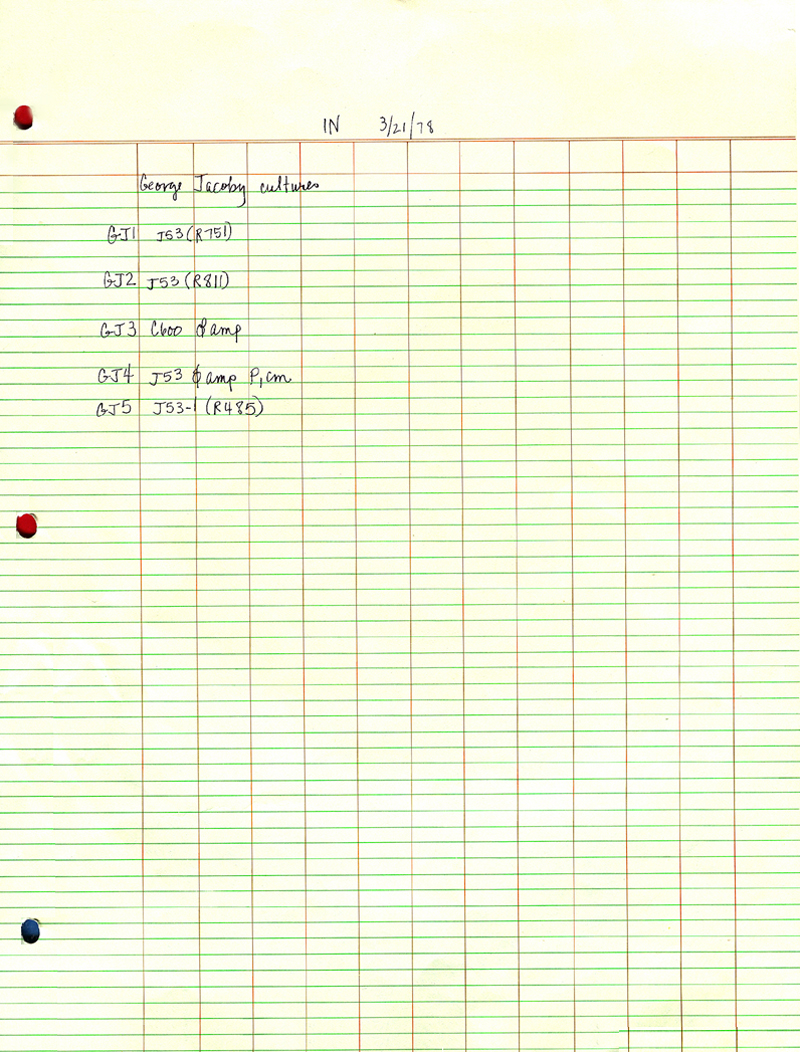 IN 3/21/78
George Jacoby cultures
GJ1 J53 (R751)
GJ2 J53 (R811)
GJ3 C600 φ amp
GJ4 J53 φ amp P1 cm
GJ5 J53-1 (R485)